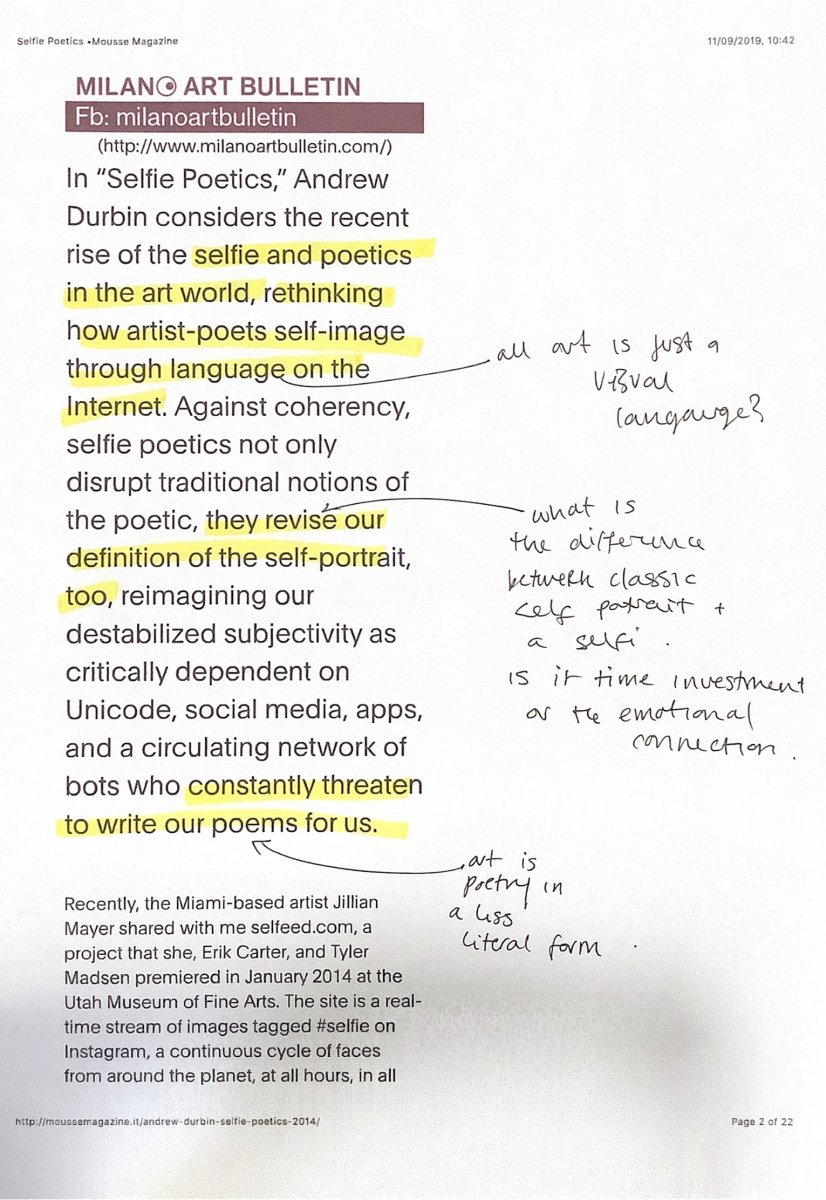 Selfie Poetics •Mousse Magazine
11/09/2019, 10:42
MILANO ART BULLETIN
Fb: milanoartbulletin
(http://www.milanoartbulletin.com/)
In “Selfie Poetics,” Andrew
Durbin considers the recent
rise of the selfie and poetics
in the art world, rethinking
how artist-poets self-image
through language on the
Internet. Against coherency,
selfie poetics not only
disrupt traditional notions of
the poetic, they revise our
definition of the self-portrait,
too, reimagining our
destabilized subjectivity as
critically dependent on
Unicode, social media, apps,
and a circulating network of
bots who constantly threaten
to write our poems for us.
all art is just a
visual
langauge?
what is
the difference
between classic
self potrait +
a selfi.
is it time investment
or the emotional
connection.
art is
poetry in
a less
literal form.
Recently, the Miami-based artist Jillian
Mayer shared with me selfeed.com, a
project that she, Erik Carter, and Tyler
Madsen premiered in January 2014 at the
Utah Museum of Fine Arts. The site is a real-
time stream of images tagged #selfie on
Instagram, a continuous cycle of faces
from around the planet, at all hours, in all
http://moussemagazine.it/andrew-durbin-selfie-poetics-2014/
Page 2 of 22